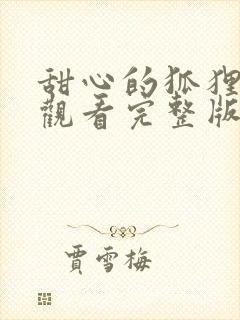 甜心的狐狸
觀看完整版
賈雪梅